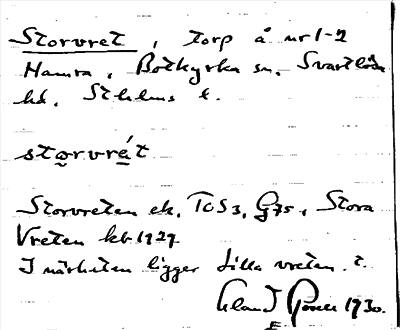 Storvret, torp å nr 1-2
Hamra, Botkyrka sn. Svartlösa
hd, Sthlms l.
sto̲rvrá̲t
Storvreten ek. TOS3, G75, Stora
Vreten kb 1929
I närheten ligger Lilla vreten. t.
1930.